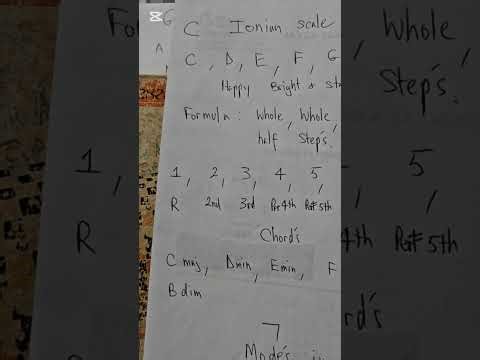 C Ionian scale
C, D, E, F, G
Happy Bright &
Formula: Whole, Whole,
half Step's.
1, 2, 3, 4, 5
R 2nd 3rd Per 4th Per 5th
Chord's
C maj, Dmin, Emin, F
B dim
Mode's
Whole,
Step's.
5
R
Per 5th